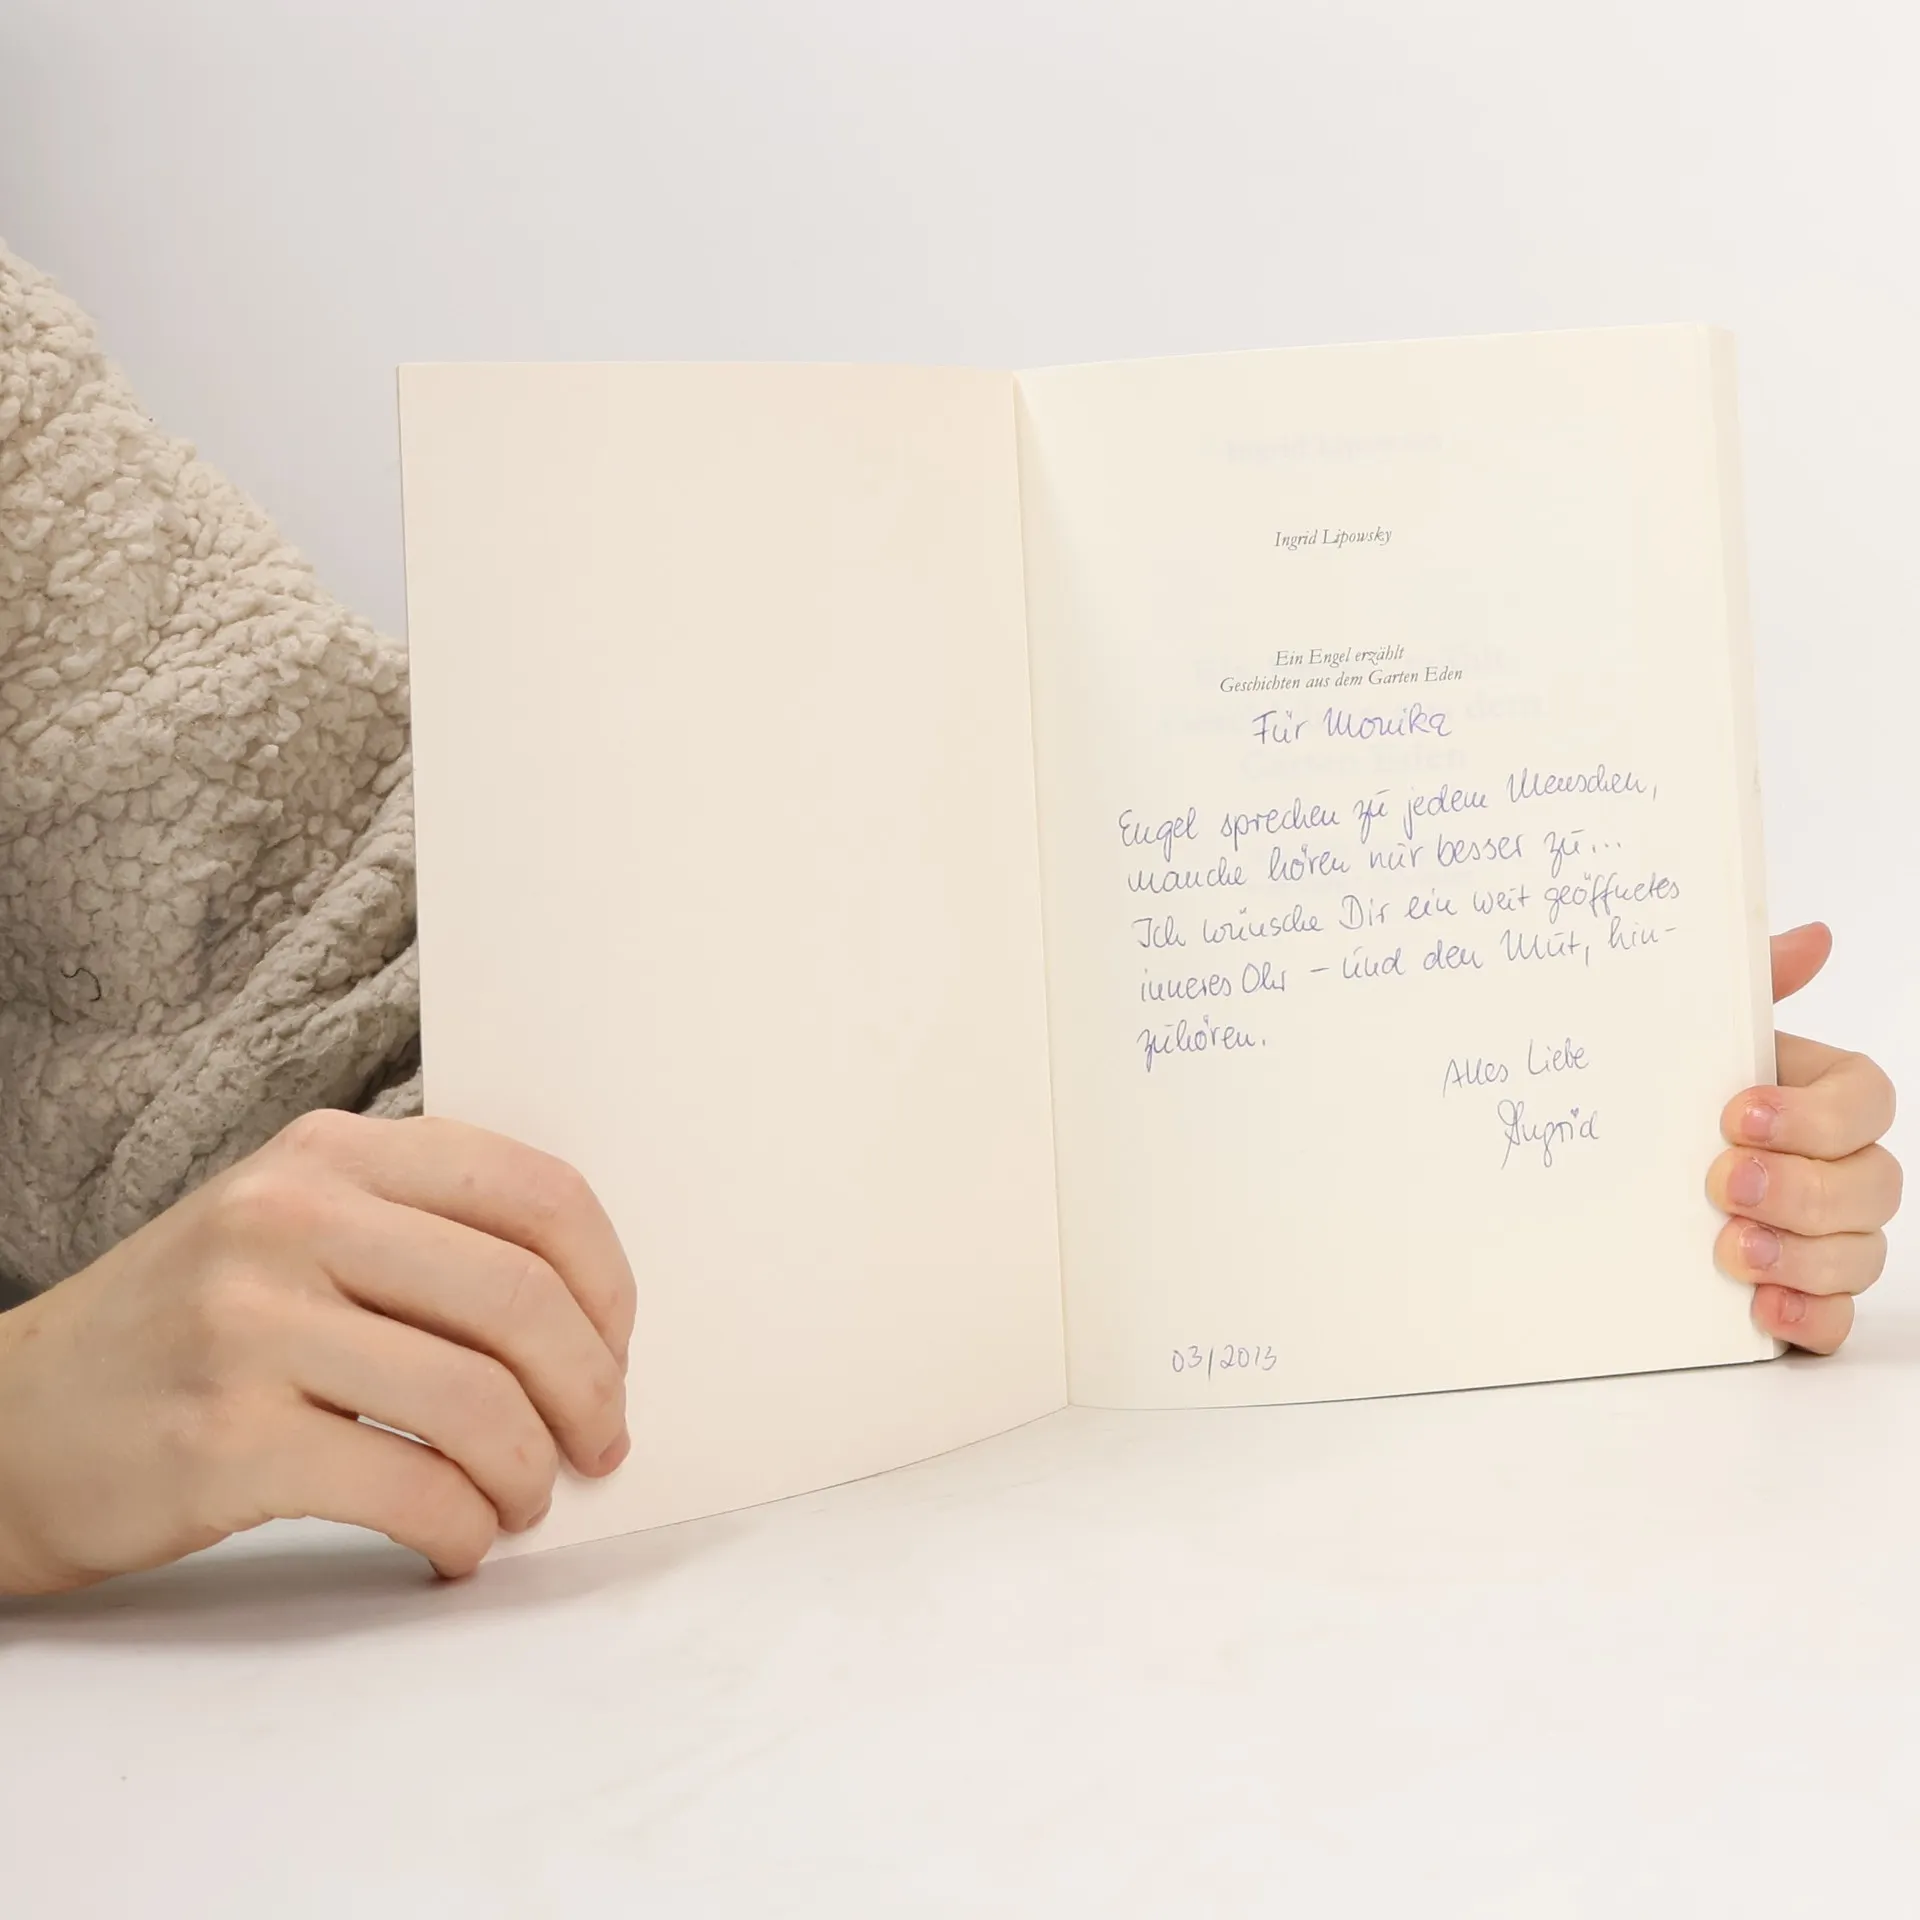 Ingrid Lipowsky
Ein Engel erzählt
Geschichten aus dem Garten Eden
Für Monika
Engel sprechen zu jedem Menschen,
manche hören nur besser zu...
Ich wünsche Dir ein weit geöffnetes
inneres Ohr – und den Mut, hin-
zuhören.
Alles Liebe
Ingrid
03/2013